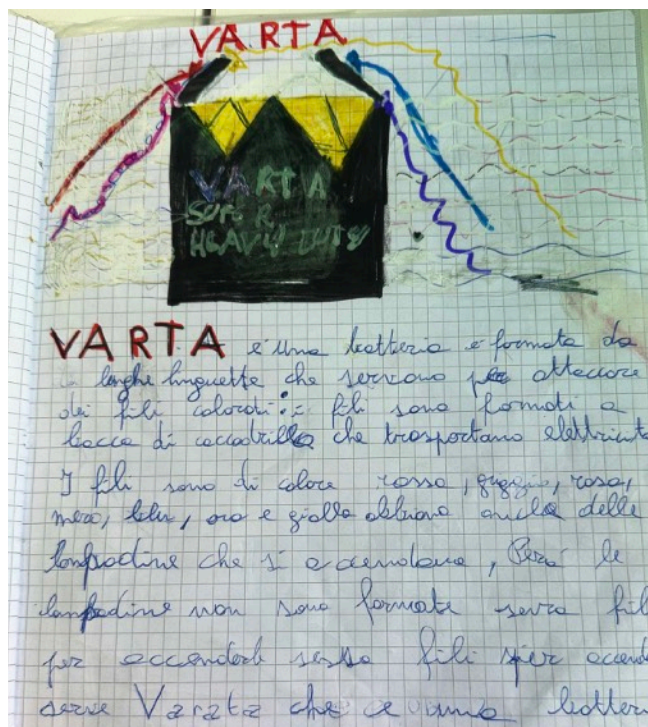 VARTA
VARTA
SUPER
HEAVY DUTY
VARTA è una batteria è formata da
lenghe linguette che servono per attaccare
dei fili colorati: i fili sono formati a
bocca di coccodrillo che trasportano elettricità
I fili sono di colore rosso, grigio, rosa,
nero, blu, oro e giallo abbiano anche delle
lampadine che si accendano, Però le
lampadine non sono formate senza fili
per accenderle senza fili per accend
serve Varata che è una batter